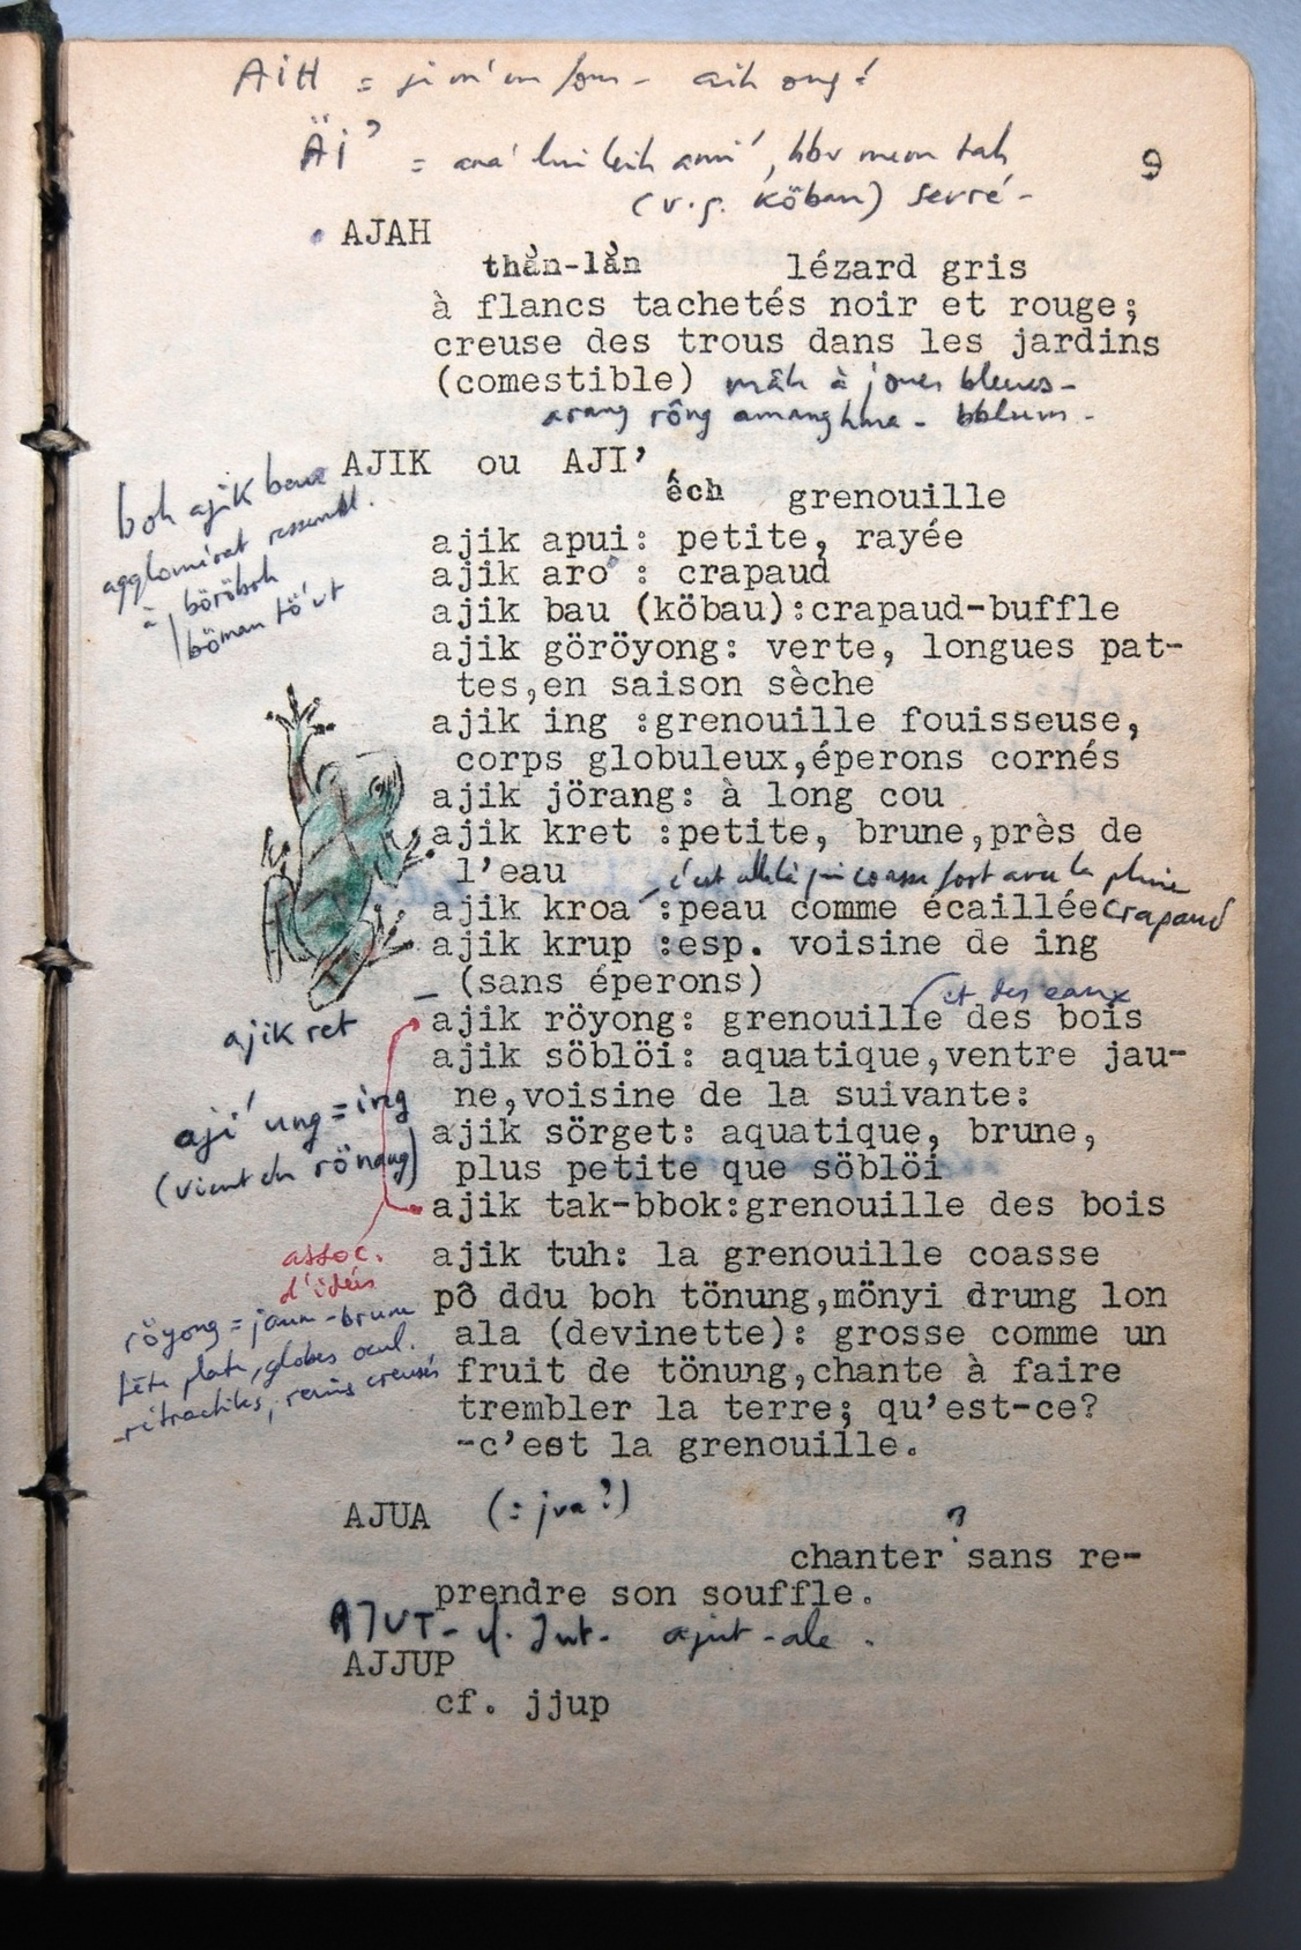 AiH = ong!
Äi' =
9
(v.g. köbau) serré -
AJAH
thằn-lằn lézard gris
à flancs tachetés noir et rouge;
creuse des trous dans les jardins
(comestible) mâh à joues bleues -
arang rông amang hma - bblum -
AJIK ou AJI'
êch grenouille
boh ajik bau
agglomérat ressembl.
à böröboh
böman tö'ut
ajik apui: petite, rayée
ajik aro : crapaud
ajik bau (köbau):crapaud-buffle
ajik göröyong: verte, longues pat-
tes,en saison sèche
ajik ing :grenouille fouisseuse,
corps globuleux,éperons cornés
ajik jörang: à long cou
ajik kret :petite, brune,près de
l'eau
c'est celle-là qui coasse fort avec la pluie
ajik kroa :peau comme écaillée crapaud
ajik krup :esp. voisine de ing
(sans éperons)
et des eaux
ajik röyong: grenouille des bois
ajik söblöi: aquatique,ventre jau-
ne,voisine de la suivante:
ajik sörget: aquatique, brune,
plus petite que söblöi
ajik tak-bbok:grenouille des bois
ajik tuh: la grenouille coasse
pô ddu boh tönung,mönyi drung lon
ala (devinette): grosse comme un
fruit de tönung,chante à faire
trembler la terre; qu'est-ce?
-c'est la grenouille.
ajik ret
aji' ung = ing
(vient du rönang)
assoc.
d'idées
röyong = jaune-brune
tête plate, globes ocul.
rétractiles, reins creusés
AJUA (: jua?)
?
chanter sans re-
prendre son souffle.
AJUT - cf. Jut - ajut-ale .
AJJUP
cf. jjup